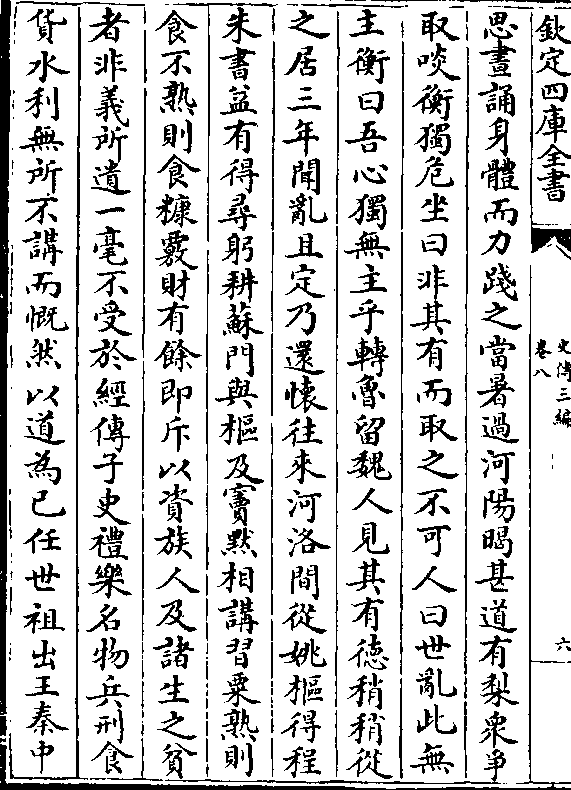 欽定四庫全書
史傳三編
卷八
六
思晝誦身體而力踐之當暑過河陽暍甚道有梨衆爭
取啖衡獨危坐曰非其有而取之不可人曰世亂此無
主衡曰吾心獨無主乎轉魯留魏人見其有徳稍稍從
之居三年聞亂且定乃還懐往來河洛間從姚樞得程
朱書益有得尋躬耕蘇門與樞及竇黙相講習粟熟則
食不熟則食糠覈財有餘即斥以資族人及諸生之貧
者非義所遺一毫不受於經傳子史禮樂名物兵刑食
貨水利無所不講而慨然以道為己任世祖出王秦中